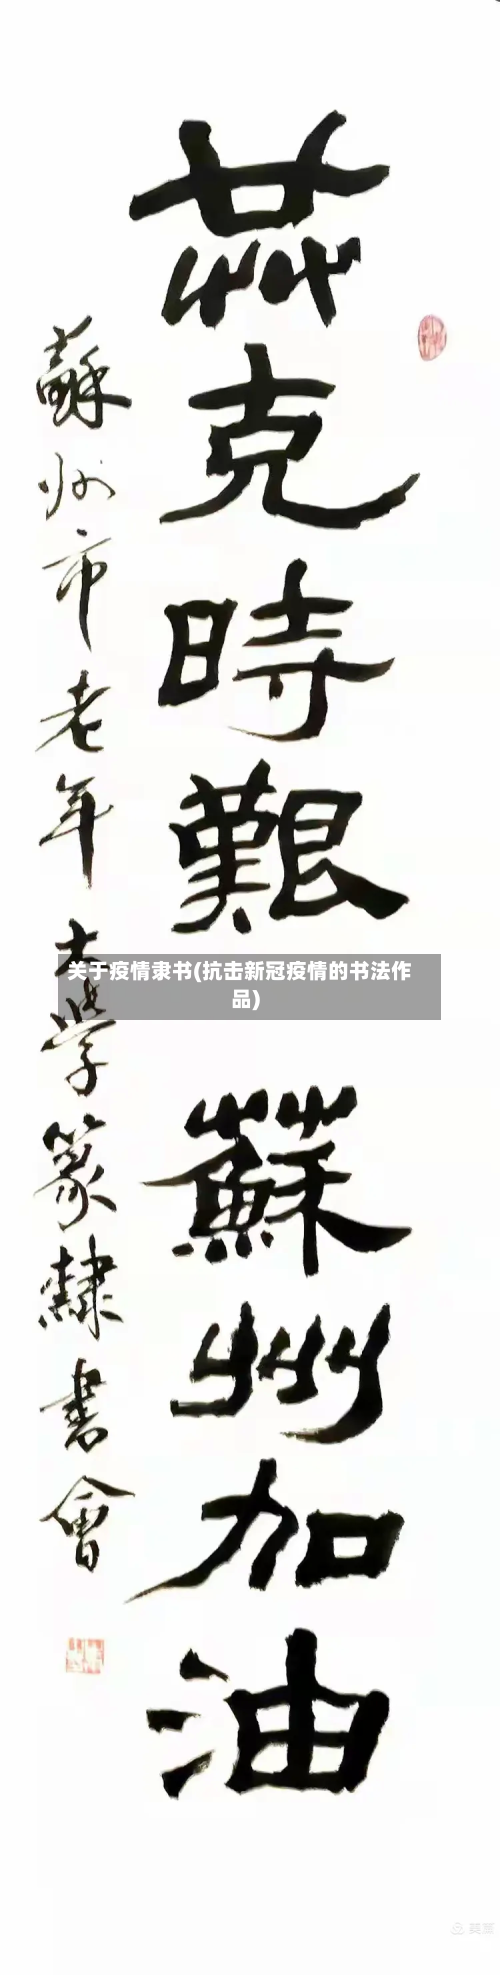 共克時艱 蘇州加油
蘇州市老年大學篆隸書會
关于疫情隶书(抗击新冠疫情的书法作
品)
美篇